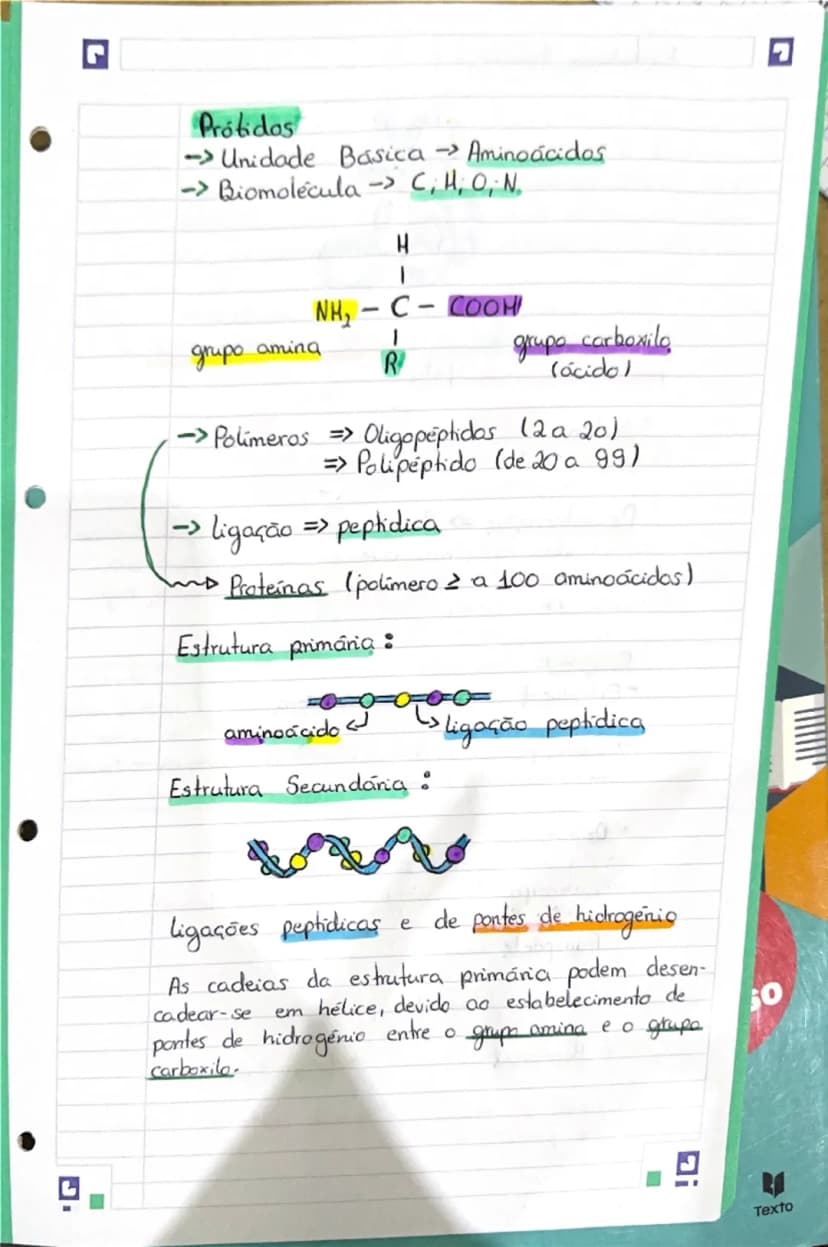 Prótidos
-> Unidade Básica -> Aminoácidos
-> Biomolécula -> C, H, O, N.
H
NH₂ - C - COOH
grupo amina
R
grupo carboxilo
(ácido)
-> Polímeros => Oligopéptidos (2 a 20)
=> Polipéptido (de 20 a 99)
-> ligação => peptídica
Proteínas (polímero ≥ a 100 aminoácidos)
Estrutura primária:
aminoácido
ligação peptídica
Estrutura Secundária:
ligações peptídicas e de pontes de hidrogénio
As cadeias da estrutura primária podem desen-
cadear-se em hélice, devido ao estabelecimento de
pontes de hidrogénio entre o grupo amina e o grupo
carboxilo.
50
Texto